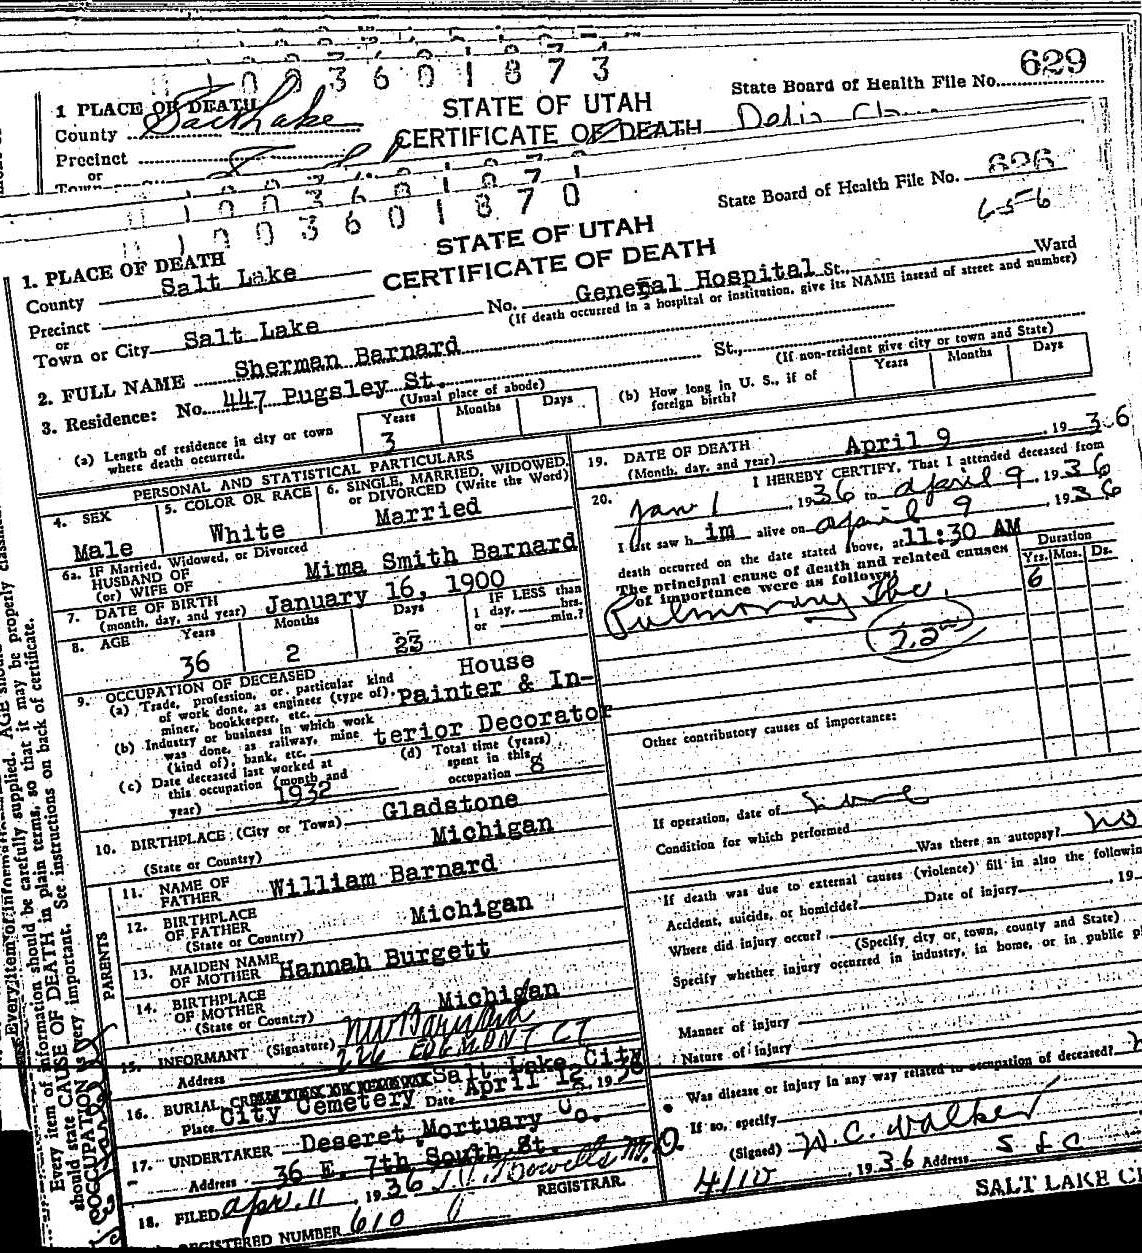 1 0 0 3 6 0 1 8 7 3
629
1 PLACE OF DEATH
STATE OF UTAH
State Board of Health File No.
County Salt Lake
CERTIFICATE OF DEATH
Precinct
or
Town
1 0 0 3 6 0 1 8 7 1
1 0 0 3 6 0 1 8 7 0
State Board of Health File No. 626
656
STATE OF UTAH
CERTIFICATE OF DEATH
1. PLACE OF DEATH
County Salt Lake
Precinct
or
Town or City Salt Lake
No. General Hospital St., Ward
(If death occurred in a hospital or institution, give its NAME insead of street and number)
2. FULL NAME Sherman Barnard
3. Residence: No. 447 Pugsley St. St.,
(Usual place of abode)
(If non-resident give city or town and State)
(a) Length of residence in city or town where death occurred.
Years 3 Months Days
(b) How long in U. S., if of foreign birth?
Years Months Days
PERSONAL AND STATISTICAL PARTICULARS
4. SEX
Male
5. COLOR OR RACE
White
6. SINGLE, MARRIED, WIDOWED,
or DIVORCED (Write the Word)
Married
6a. IF Married, Widowed, or Divorced
HUSBAND OF
(or) WIFE OF
Mima Smith Barnard
7. DATE OF BIRTH
(month, day, and year) January 16, 1900
8. AGE Years Months Days
36 2 23
IF LESS than
1 day, hrs.
or min.?
9. OCCUPATION OF DECEASED
(a) Trade, profession, or particular kind
of work done, as engineer (type of),
miner, bookkeeper, etc.
House
Painter & In-
terior Decorator
(b) Industry or business in which work
was done, as railway, mine
(kind of), bank, etc.
(c) Date deceased last worked at
this occupation (month and
year) 1932
(d) Total time (years)
spent in this
occupation 8
10. BIRTHPLACE (City or Town) Gladstone
(State or Country) Michigan
PARENTS
11. NAME OF
FATHER William Barnard
12. BIRTHPLACE
OF FATHER
(State or Country) Michigan
13. MAIDEN NAME
OF MOTHER Hannah Burgett
14. BIRTHPLACE
OF MOTHER
(State or Country) Michigan
15. INFORMANT (Signature) Barnard
Address 226 EDGMONT CT
Salt Lake City
16. BURIAL
Place City Cemetery Date April 12, 1936
17. UNDERTAKER Deseret Mortuary Co.
Address 36 E. 7th South St.
18. FILED Apr. 11, 1936
REGISTRAR.
REGISTERED NUMBER 610
19. DATE OF DEATH
(Month, day, and year) April 9, 1936
20. I HEREBY CERTIFY, That I attended deceased from
Jan 1, 1936 to April 9, 1936
I last saw h im alive on April 9, 1936
death occurred on the date stated above, at 11:30 AM
The principal cause of death and related causes
of importance were as follows:
Duration
Yrs. Mos. Ds.
6
Pulmonary Tbc.
Other contributory causes of importance:
If operation, date of
Condition for which performed
Was there an autopsy? no
If death was due to external causes (violence) fill in also the followin
Accident, suicide, or homicide? Date of injury , 19
Where did injury occur?
(Specify city or town, county and State)
Specify whether injury occurred in industry, in home, or in public p
Manner of injury
Nature of injury
Was disease or injury in any way related to occupation of deceased?
If so, specify
(Signed) W.C. Walker
4/10, 1936 Address S L C
SALT LAKE C
Every item of information should be carefully supplied. AGE should be properly
should state CAUSE OF DEATH in plain terms, so that it may be properly classi
OCCUPATION is very important. See instructions on back of certificate.